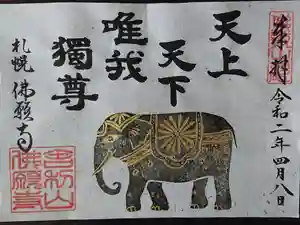 奉拝
令和二年四月八日
天上
天下
唯我
獨尊
札幌 佛願寺
佛願寺